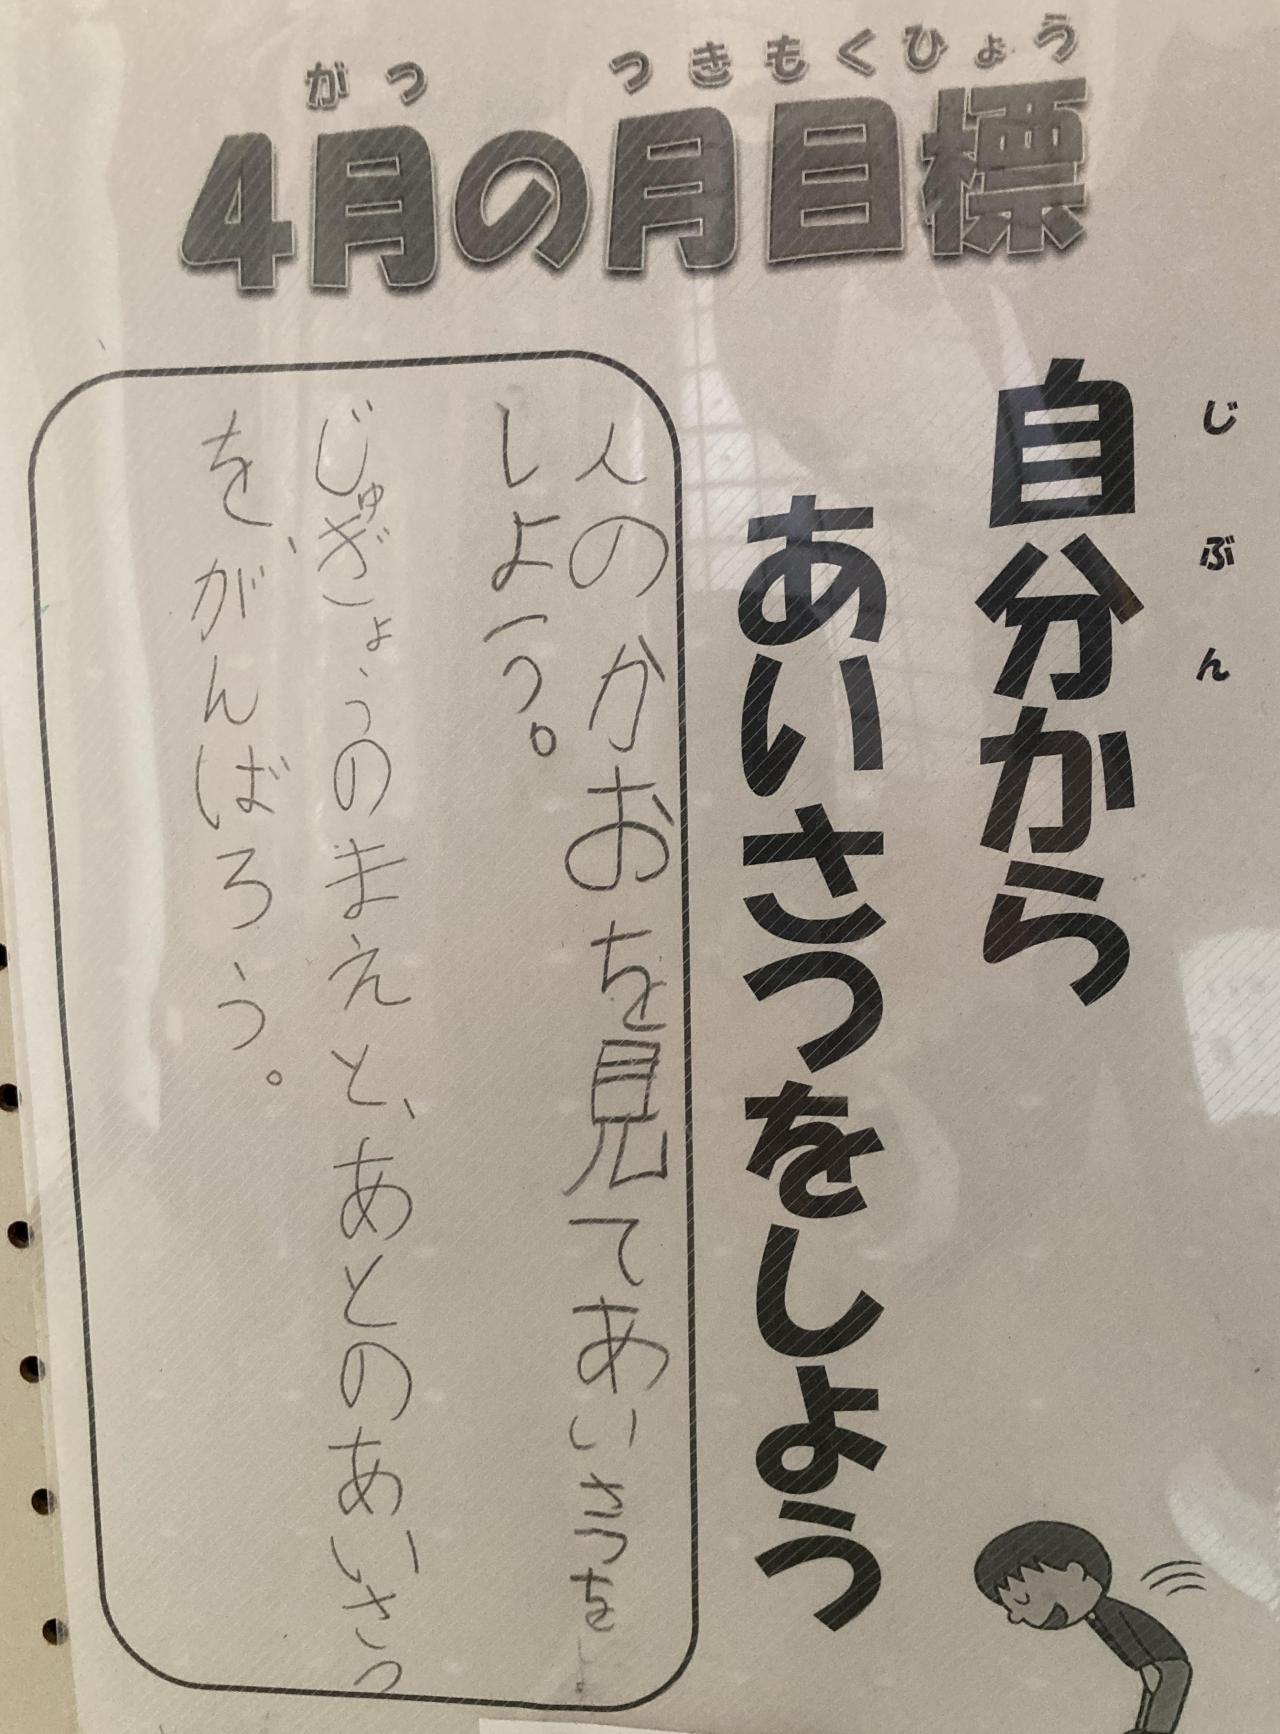 がつ つきもくひょう
4月の月目標
じぶん
自分から
あいさつをしよう
人のかおを見てあいさつを
しよう。
じゅぎょうのまえと、あとのあいさつ
を、がんばろう。